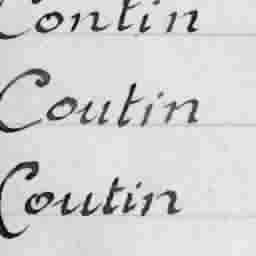 Contin
Coutin
Coutin